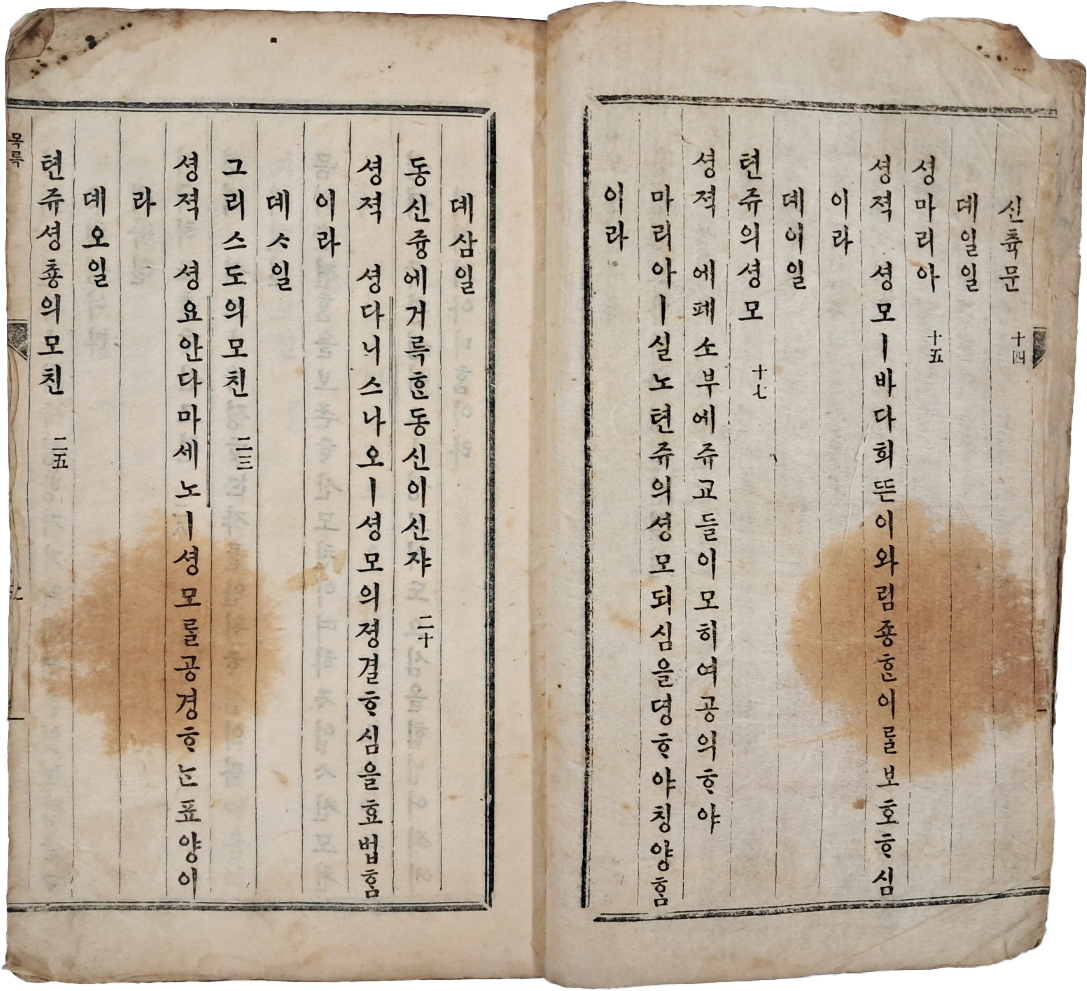 신츅문 十四
뎨일일
셩마리아 十五
셩젹 셩모ㅣ바다희뜬이와림죵ᄒᆞᆫ이ᄅᆞᆯ보호ᄒᆞ심
이라
뎨이일
텬쥬의셩모 十七
셩젹 에페소부에쥬교들이모히여공의ᄒᆞ야
마리아ㅣ실노텬쥬의셩모되심을뎡ᄒᆞ야칭양ᄒᆞᆷ
이라
뎨삼일
동신즁에거륵ᄒᆞᆫ동신이신쟈 二十
셩젹 셩다니스나오ㅣ셩모의졍결ᄒᆞ심을효법ᄒᆞᆷ
이라
뎨ᄉᆞ일
그리스도의모친 二三
셩젹 셩요안다마세노ㅣ셩모ᄅᆞᆯ공경ᄒᆞᄂᆞᆫ표양이
라
뎨오일
텬쥬셩춍의모친 二五
목록